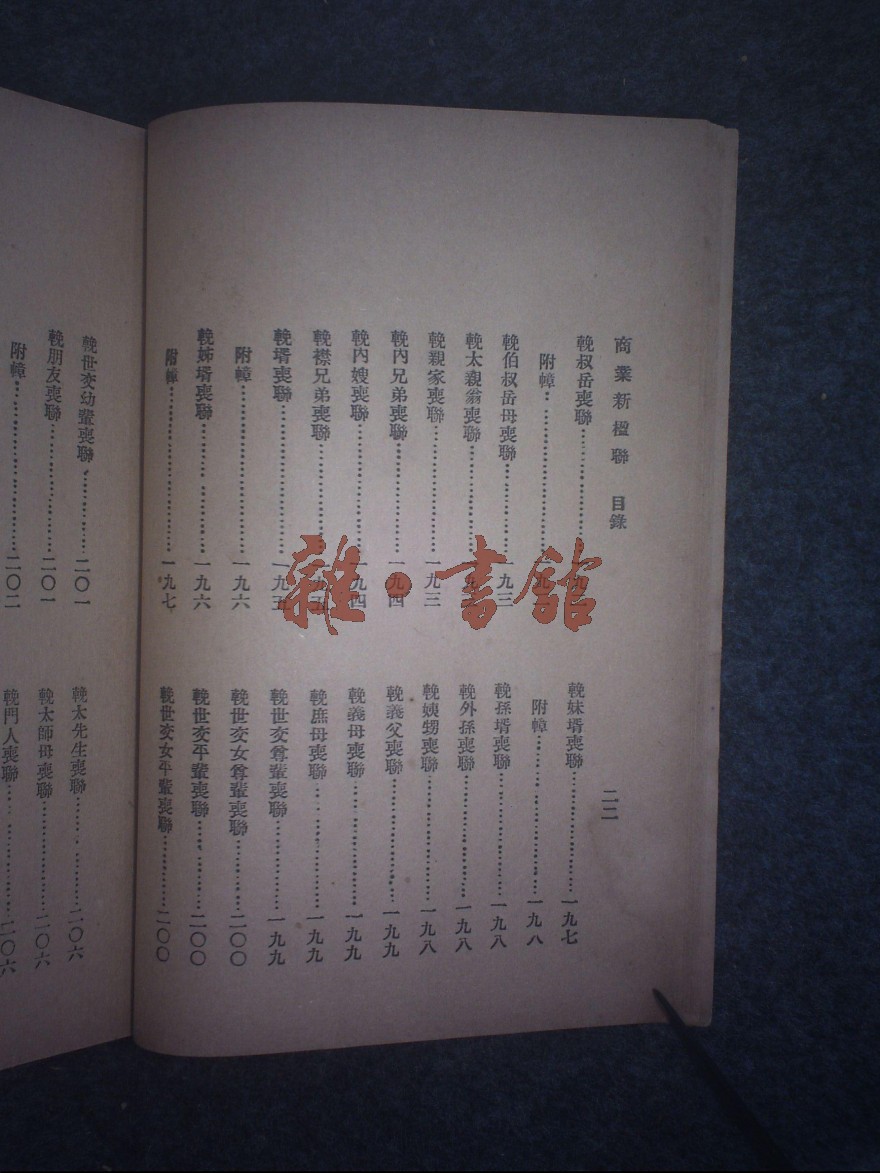 商業新楹聯 目錄 二二
輓叔岳喪聯……一九
附幛……一九
輓伯叔岳母喪聯……一九三
輓太親翁喪聯……一九
輓親家喪聯……一九三
輓內兄弟喪聯……一九四
輓內嫂喪聯……一九四
輓襟兄弟喪聯……一九五
輓壻喪聯……一九五
附幛……一九六
輓姊壻喪聯……一九六
附幛……一九七
輓妹壻喪聯……一九七
附幛……一九八
輓孫壻喪聯……一九八
輓外孫喪聯……一九八
輓姨甥喪聯……一九八
輓義父喪聯……一九九
輓義母喪聯……一九九
輓庶母喪聯……一九九
輓世交尊輩喪聯……一九九
輓世交女尊輩喪聯……二〇〇
輓世交平輩喪聯……二〇〇
輓世交女平輩喪聯……二〇〇
輓世交幼輩喪聯……二〇一
輓朋友喪聯……二〇一
附幛……二〇二
輓太先生喪聯……二〇六
輓太師母喪聯……二〇六
輓門人喪聯……二〇六
雜·書館